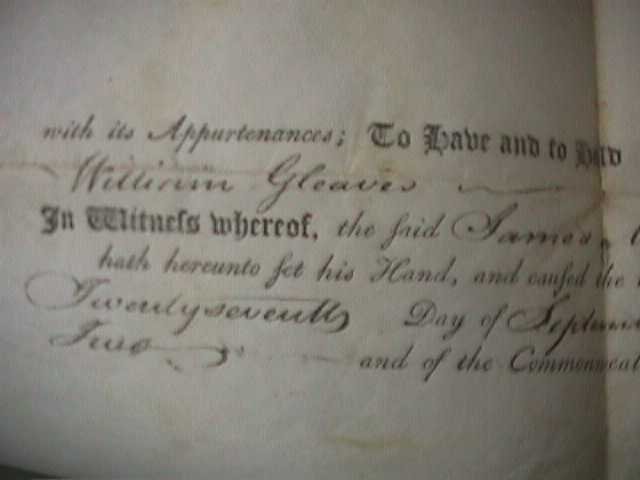 with its Appurtenances; To Have and to Hold
William Gleaves
In Witneſs whereof, the ſaid James
hath hereunto ſet his Hand, and cauſed the
Twentyseventh Day of Septem
Two and of the Commonweal